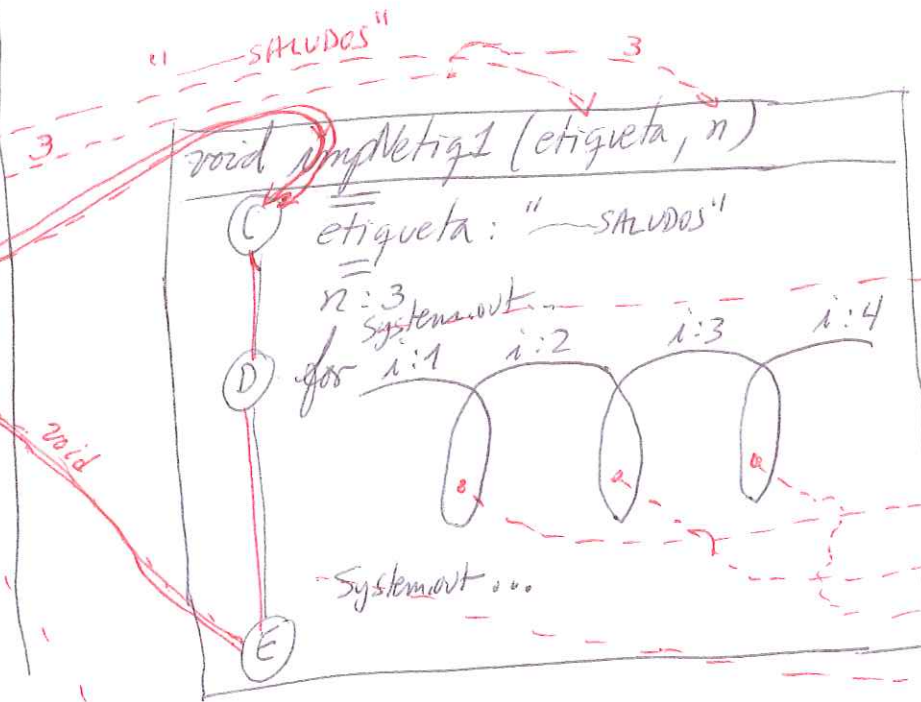 "——SALUDOS"
3
3
void impNetiq1 (etiqueta, n)
C
etiqueta: "——SALUDOS"
n:3
System.out...
D for i:1 i:2 i:3 i:4
void
System.out...
E